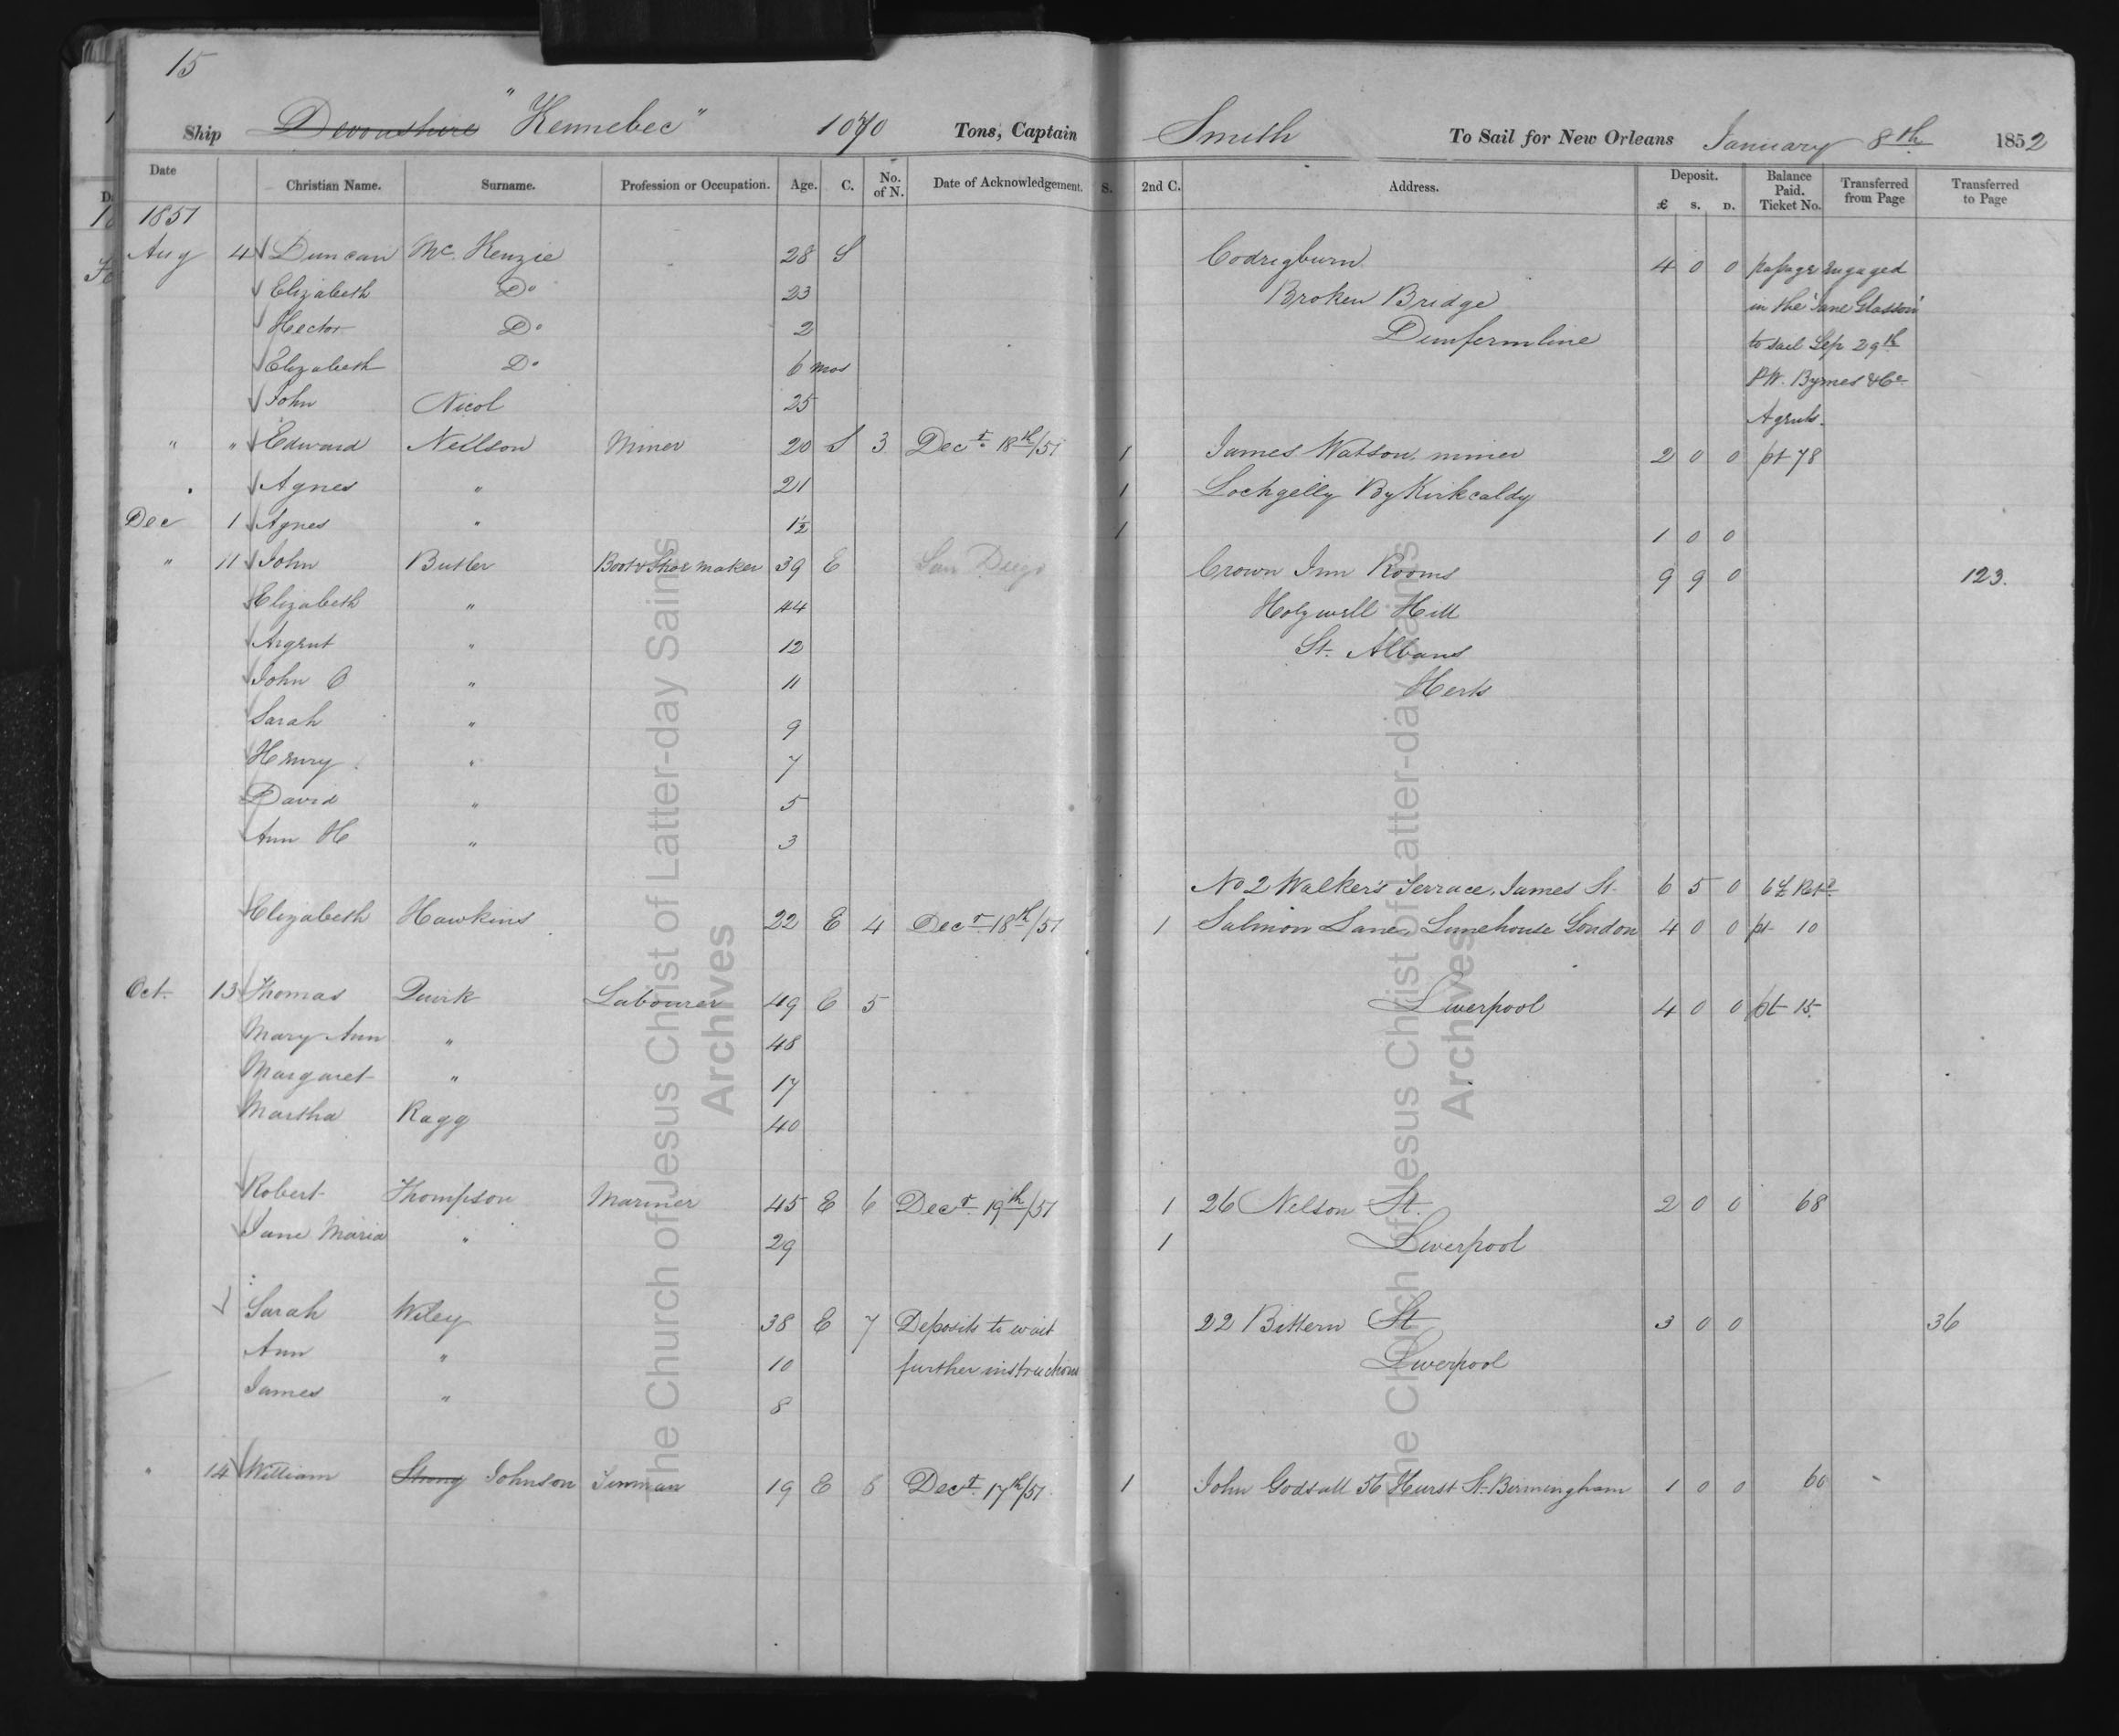 15
Ship Devonshire "Kennebec" 1070 Tons, Captain Smith To Sail for New Orleans January 8th 1852
Date Christian Name. Surname. Profession or Occupation. Age. C. No. of N. Date of Acknowledgement. S. 2nd C. Address. Deposit. £ S. D. Balance Paid. Ticket No. Transferred from Page Transferred to Page
1851
Aug 4 Duncan Mc Kenzie 28 S Codrigburn 4 0 0 passage engaged
Elizabeth Do 23 Broken Bridge in the "Jane Glasson"
Hector Do 2 Dunfermline to sail Sep 29th
Elizabeth Do 6 mos P.W. Byrnes & Co
John Nicol 25 Agents.
" " Edward Neilson Miner 20 S 3 Decr 18th/51 1 James Watson, miner 2 0 0 pt 78
Agnes " 21 1 Lochgelly By Kirkcaldy
Dec 1 Agnes " 1½ 1 1 0 0
" 11 John Butler Boot & Shoe maker 39 E San Diego Crown Inn Rooms 9 9 0 123.
Elizabeth " 44 Holywell Hill
Argent " 12 St. Albans
John O " 11 Herts
Sarah " 9
Henry " 7
David " 5
Ann H " 3
No 2 Walker's Terrace, James St. 6 5 0 6£ Retd
Elizabeth Hawkins 22 E 4 Decr 18th/51 1 Salmon Lane, Limehouse London 4 0 0 pt 10
Oct. 13 Thomas Quirk Labourer 49 E 5 Liverpool 4 0 0 pt 15.
Mary Ann " 48
Margaret " 17
Martha Ragg 40
Robert Thompson Mariner 45 E 6 Decr 19th/51 1 26 Nelson St. 2 0 0 68
Jane Maria " 29 1 Liverpool
Sarah Wiley 38 E 7 Deposits to wait 22 Bittern St 3 0 0 36
Ann " 10 further instructions Liverpool
James " 8
" 14 William Strong Johnson Tinman 19 E 8 Decr 17th/51. 1 John Godsall 56 Hurst St. Birmingham 1 0 0 60
The Church of Jesus Christ of Latter-day Saints
Archives
The Church of Jesus Christ of Latter-day Saints
Archives